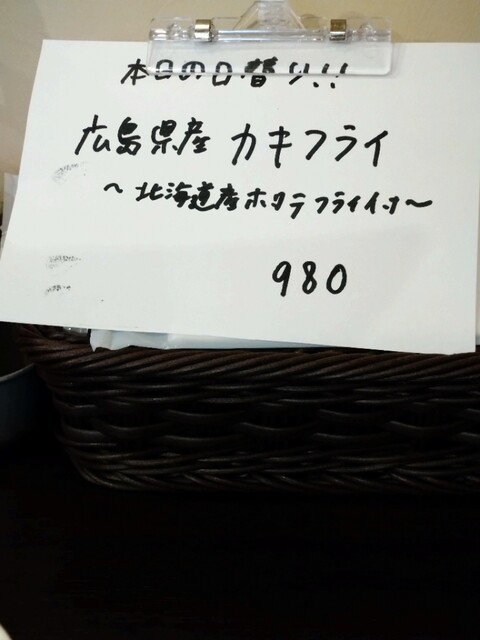 本日の日替り!!
広島県産 カキフライ
〜北海道産ホタテフライ付〜
980